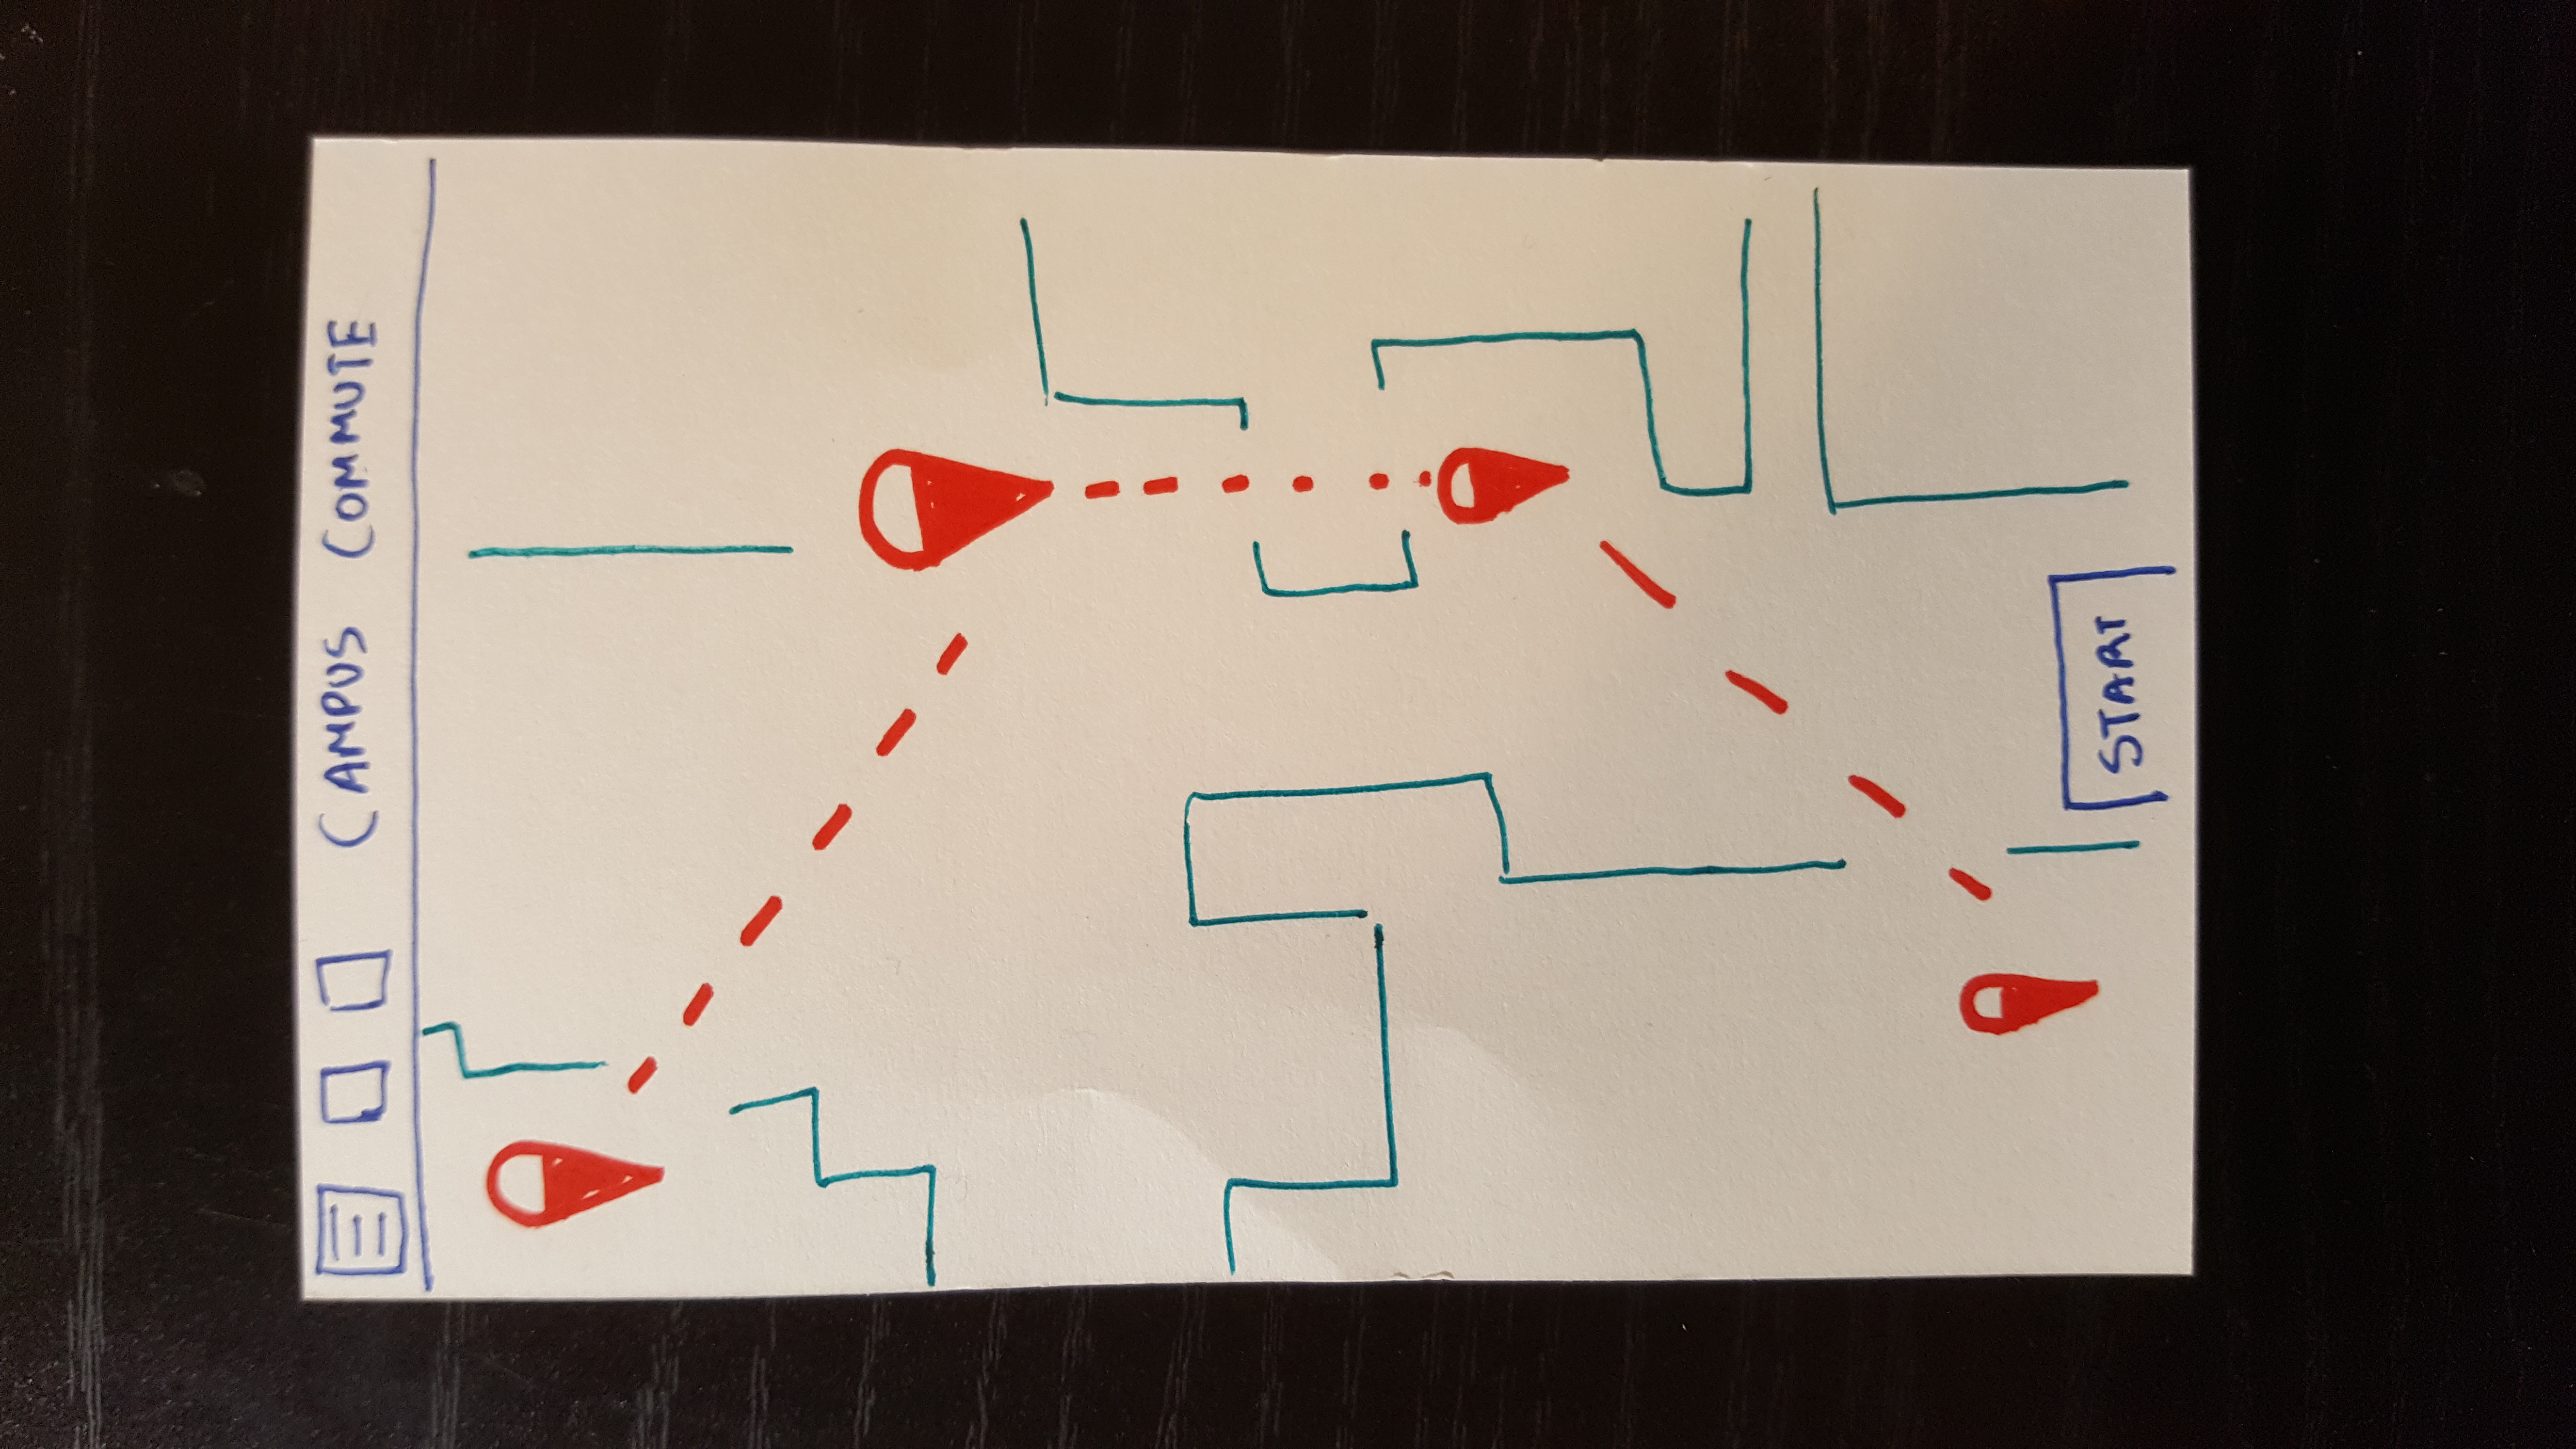 CAMPUS COMMUTE
START